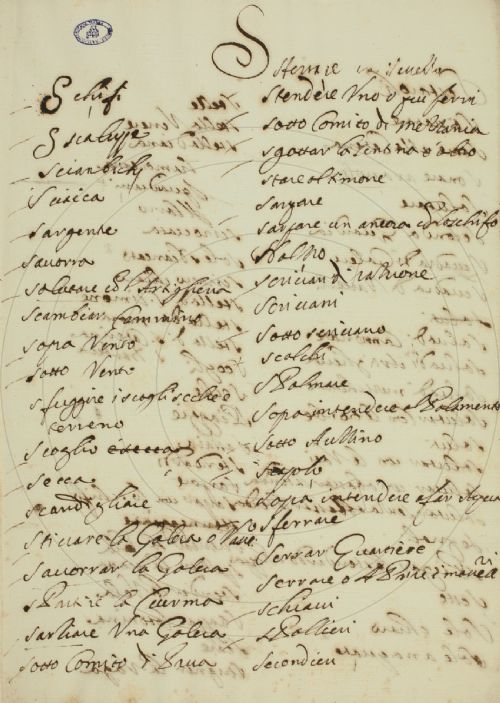 S
Schifi
Scaluppe
Sciabichi
Saica
Sargente
Savorra
Salutare col Artiglieria
Scambiar Cammino
Sopra Vento
Sotto Vento
Sfuggire i scogli secche ò
terreno
Scoglio
Secca
Scandigliare
Stivare la Galera o Nave
Savorrar la Galera
Spartire la Ciurma
Sartiare Una Galera
Sotto Comito di Prua
Sferrare
Stendere Uno o più ferri
Sotto Comito di Mezzania
Sgottar la Sentina
Stare al timone
Sarpare
Sarpare un ancora col schifo
Scrivan di ratione
Scrivani
Sotto scrivano
Scalchi
Spalmare
Sopra intendere al Palamento
Sotto Auzzino
Sopra intendere a far Acqua
Sferrare
Serrar Quartiere
Serrare
Schiavi
Spallieri
Secondieri